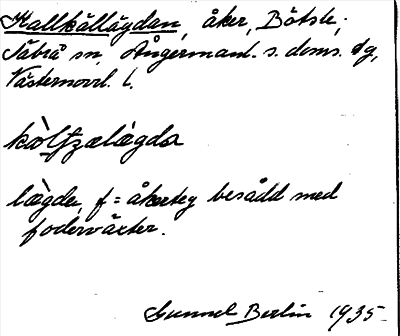 Kallkällägdan, åker, Bölsle,
Säbrå sn, Ångermanl. s. doms. dg,
Västernorrl. l.
lägde, f = åkerteg besådd med
foderväxter.
Gunnel Berlin 1935